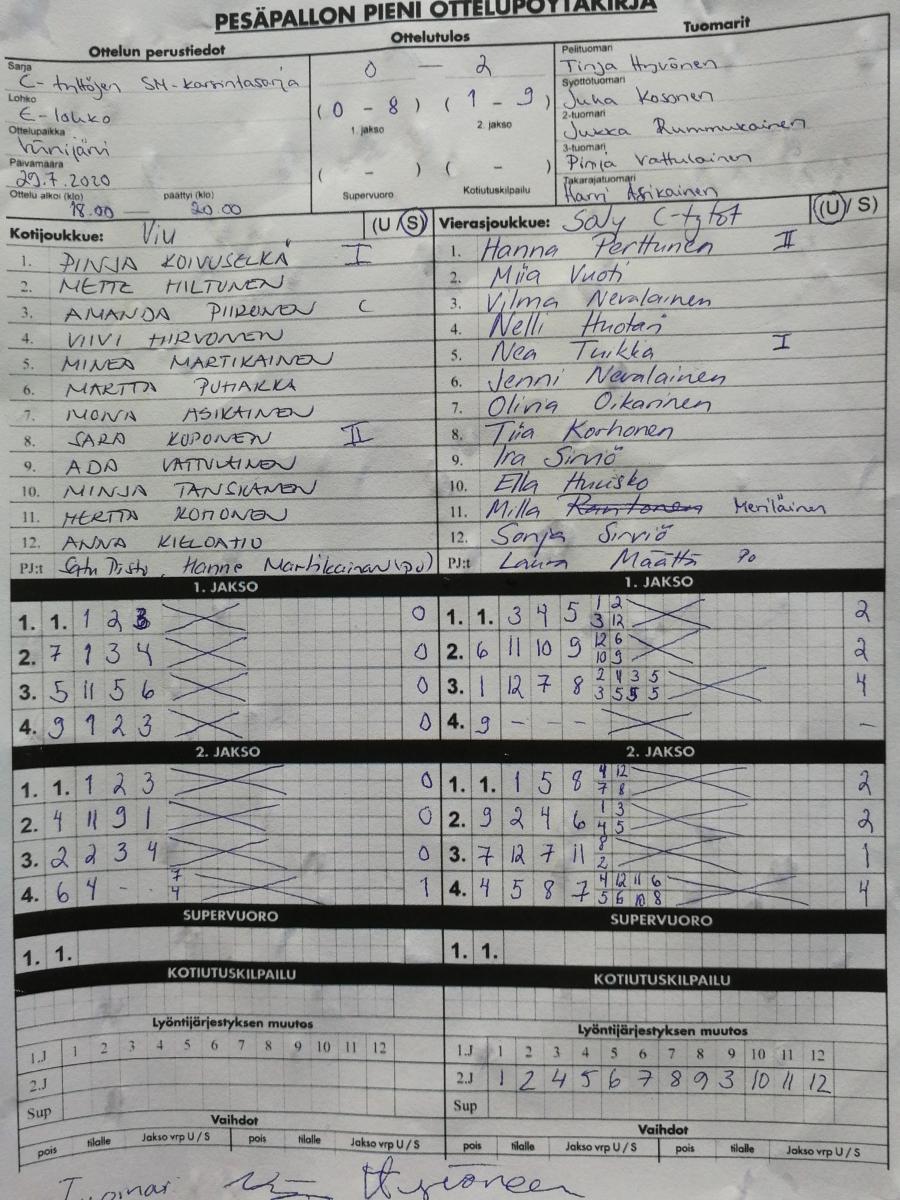 PESÄPALLON PIENI OTTELUPÖYTÄKIRJA
Ottelun perustiedot
Sarja
C-tyttöjen SM-karsintasarja
Lohko
E-lohko
Ottelupaikka
Viinijärvi
Päivämäärä
29.7.2020
Ottelu alkoi (klo) päättyi (klo)
18.00 — 20.00
Ottelutulos
0 — 2
(0 - 8) (1 - 9)
1. jakso 2. jakso
( - ) ( - )
Supervuoro Kotiutuskilpailu
Tuomarit
Pelituomari
Tinja Hyvönen
Syöttötuomari
Juha Kosonen
2-tuomari
Jukka Rummukainen
3-tuomari
Pinja Vattulainen
Takarajatuomari
Harri Asikainen
Kotijoukkue: ViU (U/S)
1. PINJA KOIVUSELKÄ I
2. METTE HILTUNEN
3. AMANDA PIIRONEN C
4. VIIVI HIRVONEN
5. MINEA MARTIKAINEN
6. MARTTA PUHAKKA
7. MONA ASIKAINEN
8. SARA KOPONEN II
9. ADA VATTULAINEN
10. MINJA TANSKANEN
11. HERTTA KOMONEN
12. ANNA
PJ:t Hanne Martikainen (PJ)
Vierasjoukkue: SoJy C-tytöt (U/S)
1. Hanna Perttunen II
2. Miia Vuoti
3. Vilma Nevalainen
4. Nelli Huotari
5. Nea Tuikka I
6. Jenni Nevalainen
7. Olivia Oikarinen
8. Tiia Korhonen
9. Ira Sirviö
10. Ella Huusko
11. Milla Meriläinen
12. Sonja Sirviö
PJ:t Laura Määttä
1. JAKSO
1. 1. 1 2 3 0
2. 7 1 3 4 0
3. 5 11 5 6 0
4. 9 1 2 3 0
2. JAKSO
1. 1. 1 2 3 0
2. 4 11 9 1 0
3. 2 2 3 4 0
4. 6 4 - - 7 1
4
SUPERVUORO
1. 1.
KOTIUTUSKILPAILU
Lyöntijärjestyksen muutos
1.J 1 2 3 4 5 6 7 8 9 10 11 12
2.J
Sup
Vaihdot
pois tilalle Jakso vrp U / S pois tilalle Jakso vrp U / S
1. JAKSO
1. 1. 3 4 5 1 2 2
3 12
2. 6 11 10 9 12 6 2
10 9
3. 1 12 7 8 2 4 3 5 4
3 5 5 5
4. 9 - - - -
2. JAKSO
1. 1. 1 5 8 4 12 2
7 8
2. 9 2 4 6 1 3 2
4 5
3. 7 12 7 11 8 1
2
4. 4 5 8 7 4 12 11 6 4
5 6 10 8
SUPERVUORO
1. 1.
KOTIUTUSKILPAILU
Lyöntijärjestyksen muutos
1.J 1 2 3 4 5 6 7 8 9 10 11 12
2.J 1 2 4 5 6 7 8 9 3 10 11 12
Sup
Vaihdot
pois tilalle Jakso vrp U / S pois tilalle Jakso vrp U / S